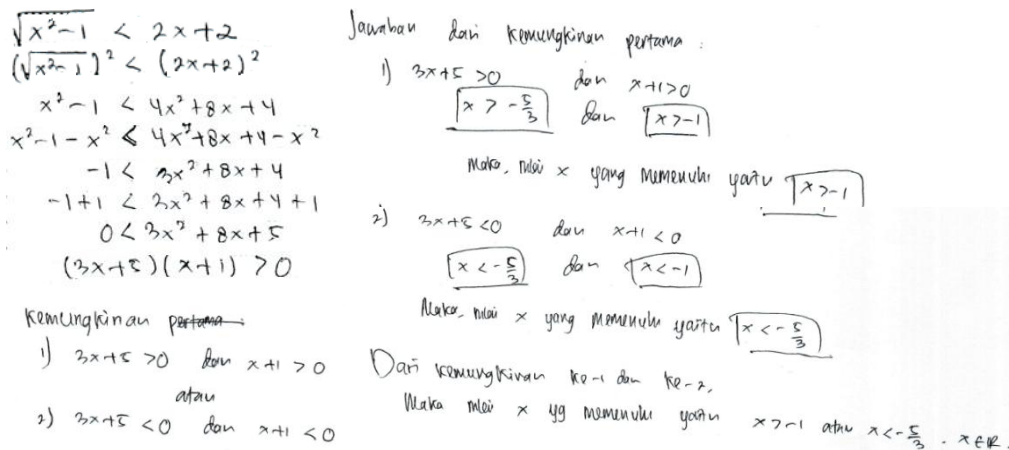 √x²-1 < 2x+2
(√x²-1)² < (2x+2)²
x²-1 < 4x²+8x+4
x²-1-x² < 4x²+8x+4-x²
-1 < 3x²+8x+4
-1+1 < 3x²+8x+4+1
0 < 3x²+8x+5
(3x+5)(x+1) > 0
Kemungkinan pertama
1) 3x+5 > 0 dan x+1 > 0
atau
2) 3x+5 < 0 dan x+1 < 0
Jawaban dari kemungkinan pertama :
1) 3x+5 > 0 dan x+1 > 0
x > -5/3 dan x > -1
Maka, nilai x yang memenuhi yaitu x > -1
2) 3x+5 < 0 dan x+1 < 0
x < -5/3 dan x < -1
Maka, nilai x yang memenuhi yaitu x < -5/3
Dari kemungkinan ke-1 dan ke-2,
Maka nilai x yg memenuhi yaitu x > -1 atau x < -5/3 . x ∈ R.